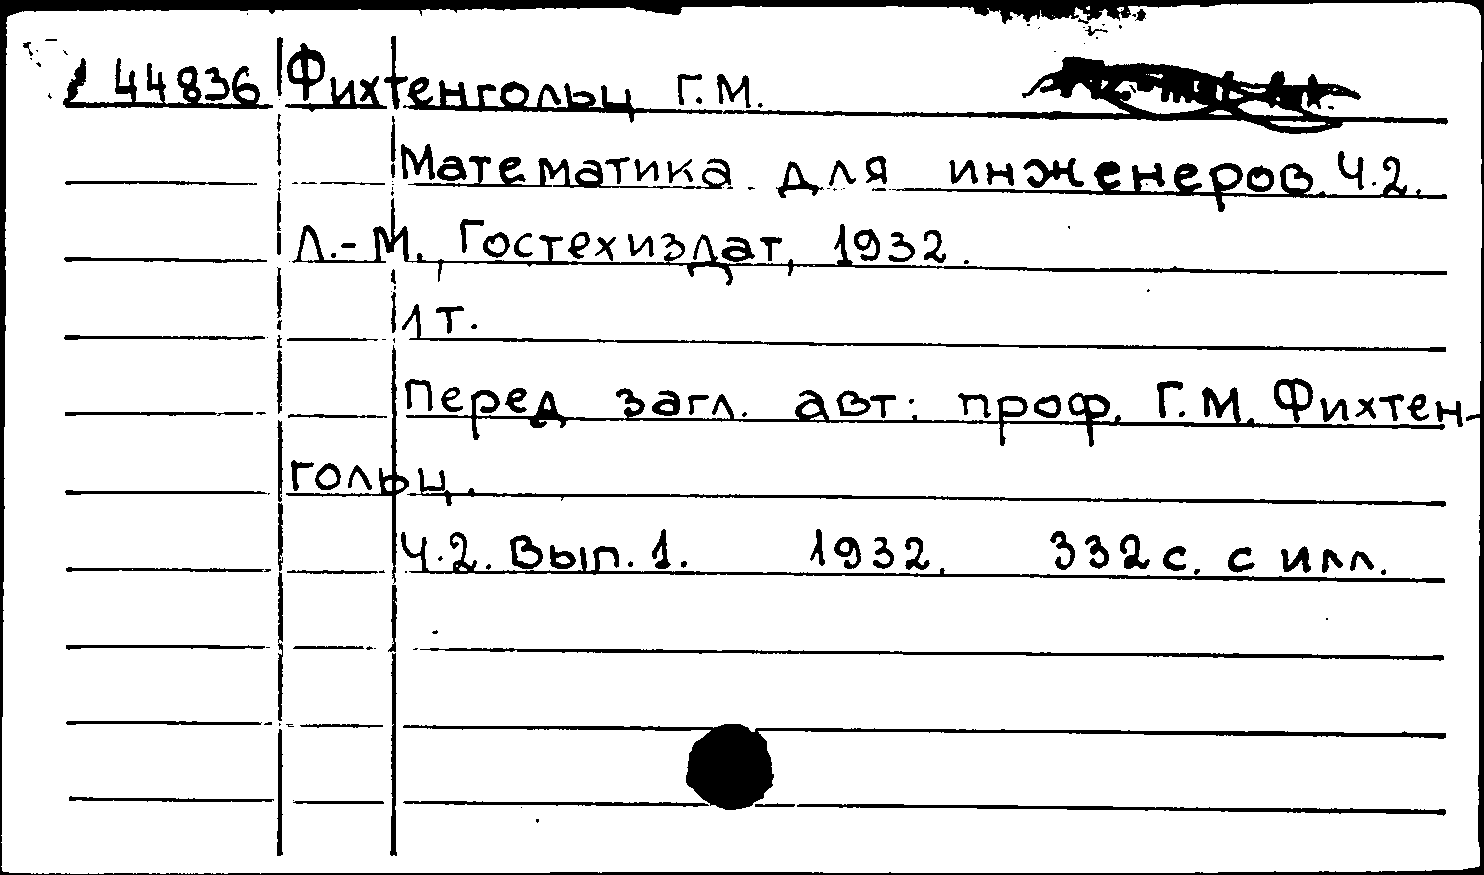 44836 Фихтенгольц Г.М.
Математика для инженеров. Ч.2.
Л.-М., Гостехиздат, 1932.
1 т.
Перед загл. авт: проф. Г.М. Фихтен-
гольц.
Ч.2. Вып. 1. 1932. 332 с. с илл.